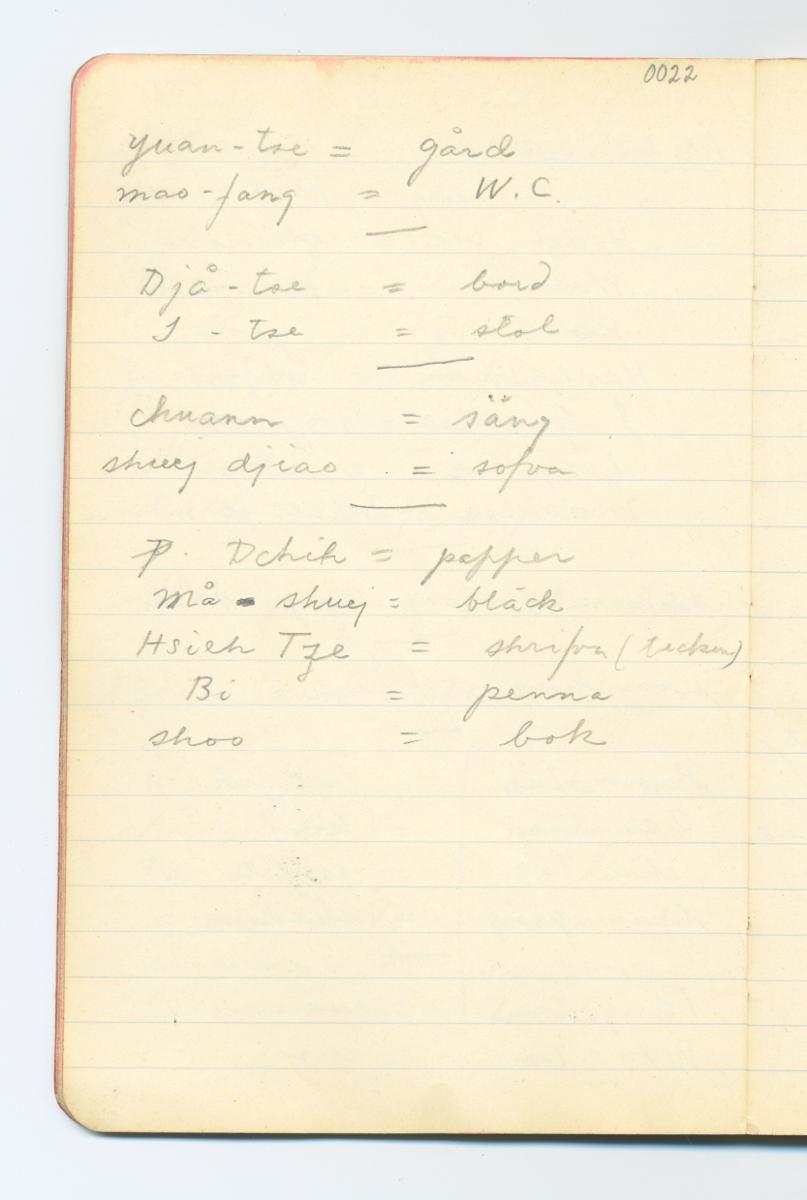 0022
yuan-tse = gård
mao-fang = W.C.
Djå-tse = bord
I - tse = stol
chuann = säng
shuej djiao = sofva
Dchih = papper
Må - shuej = bläck
Hsieh Tze = skrifva (tecken)
Bi = penna
shoo = bok